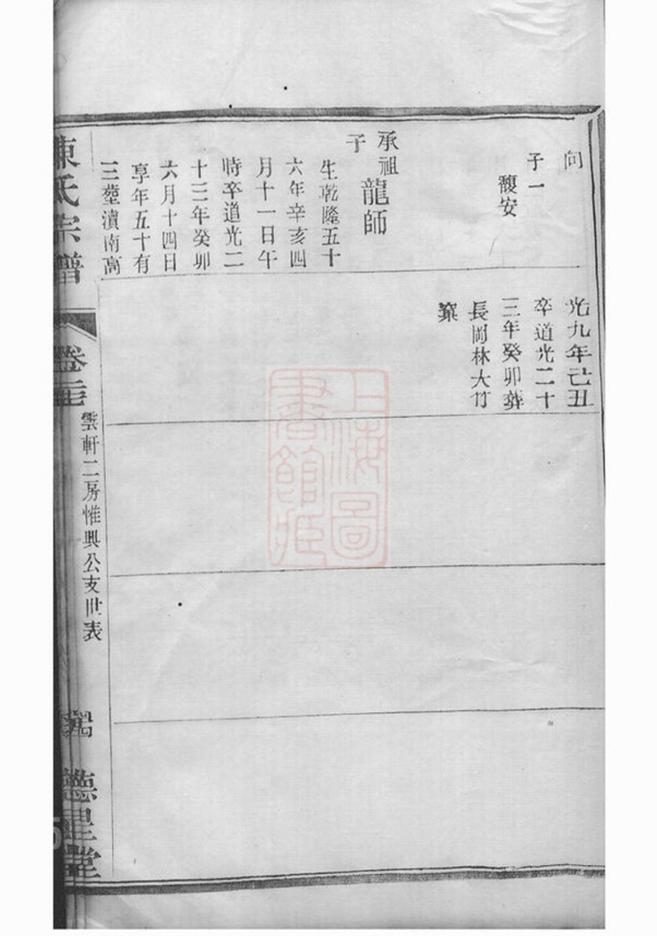 向
子一
馥安
承祖
子
龍師
生乾隆五十
六年辛亥四
月十一日午
時卒道光二
十三年癸卯
六月十四日
享年五十有
三塟滇南高
光九年己丑
卒道光二十
三年癸卯葬
長岡林大竹
窠
陳氏宗譜
雲軒二房惟興公支世表
德星堂
上海圖
書館藏